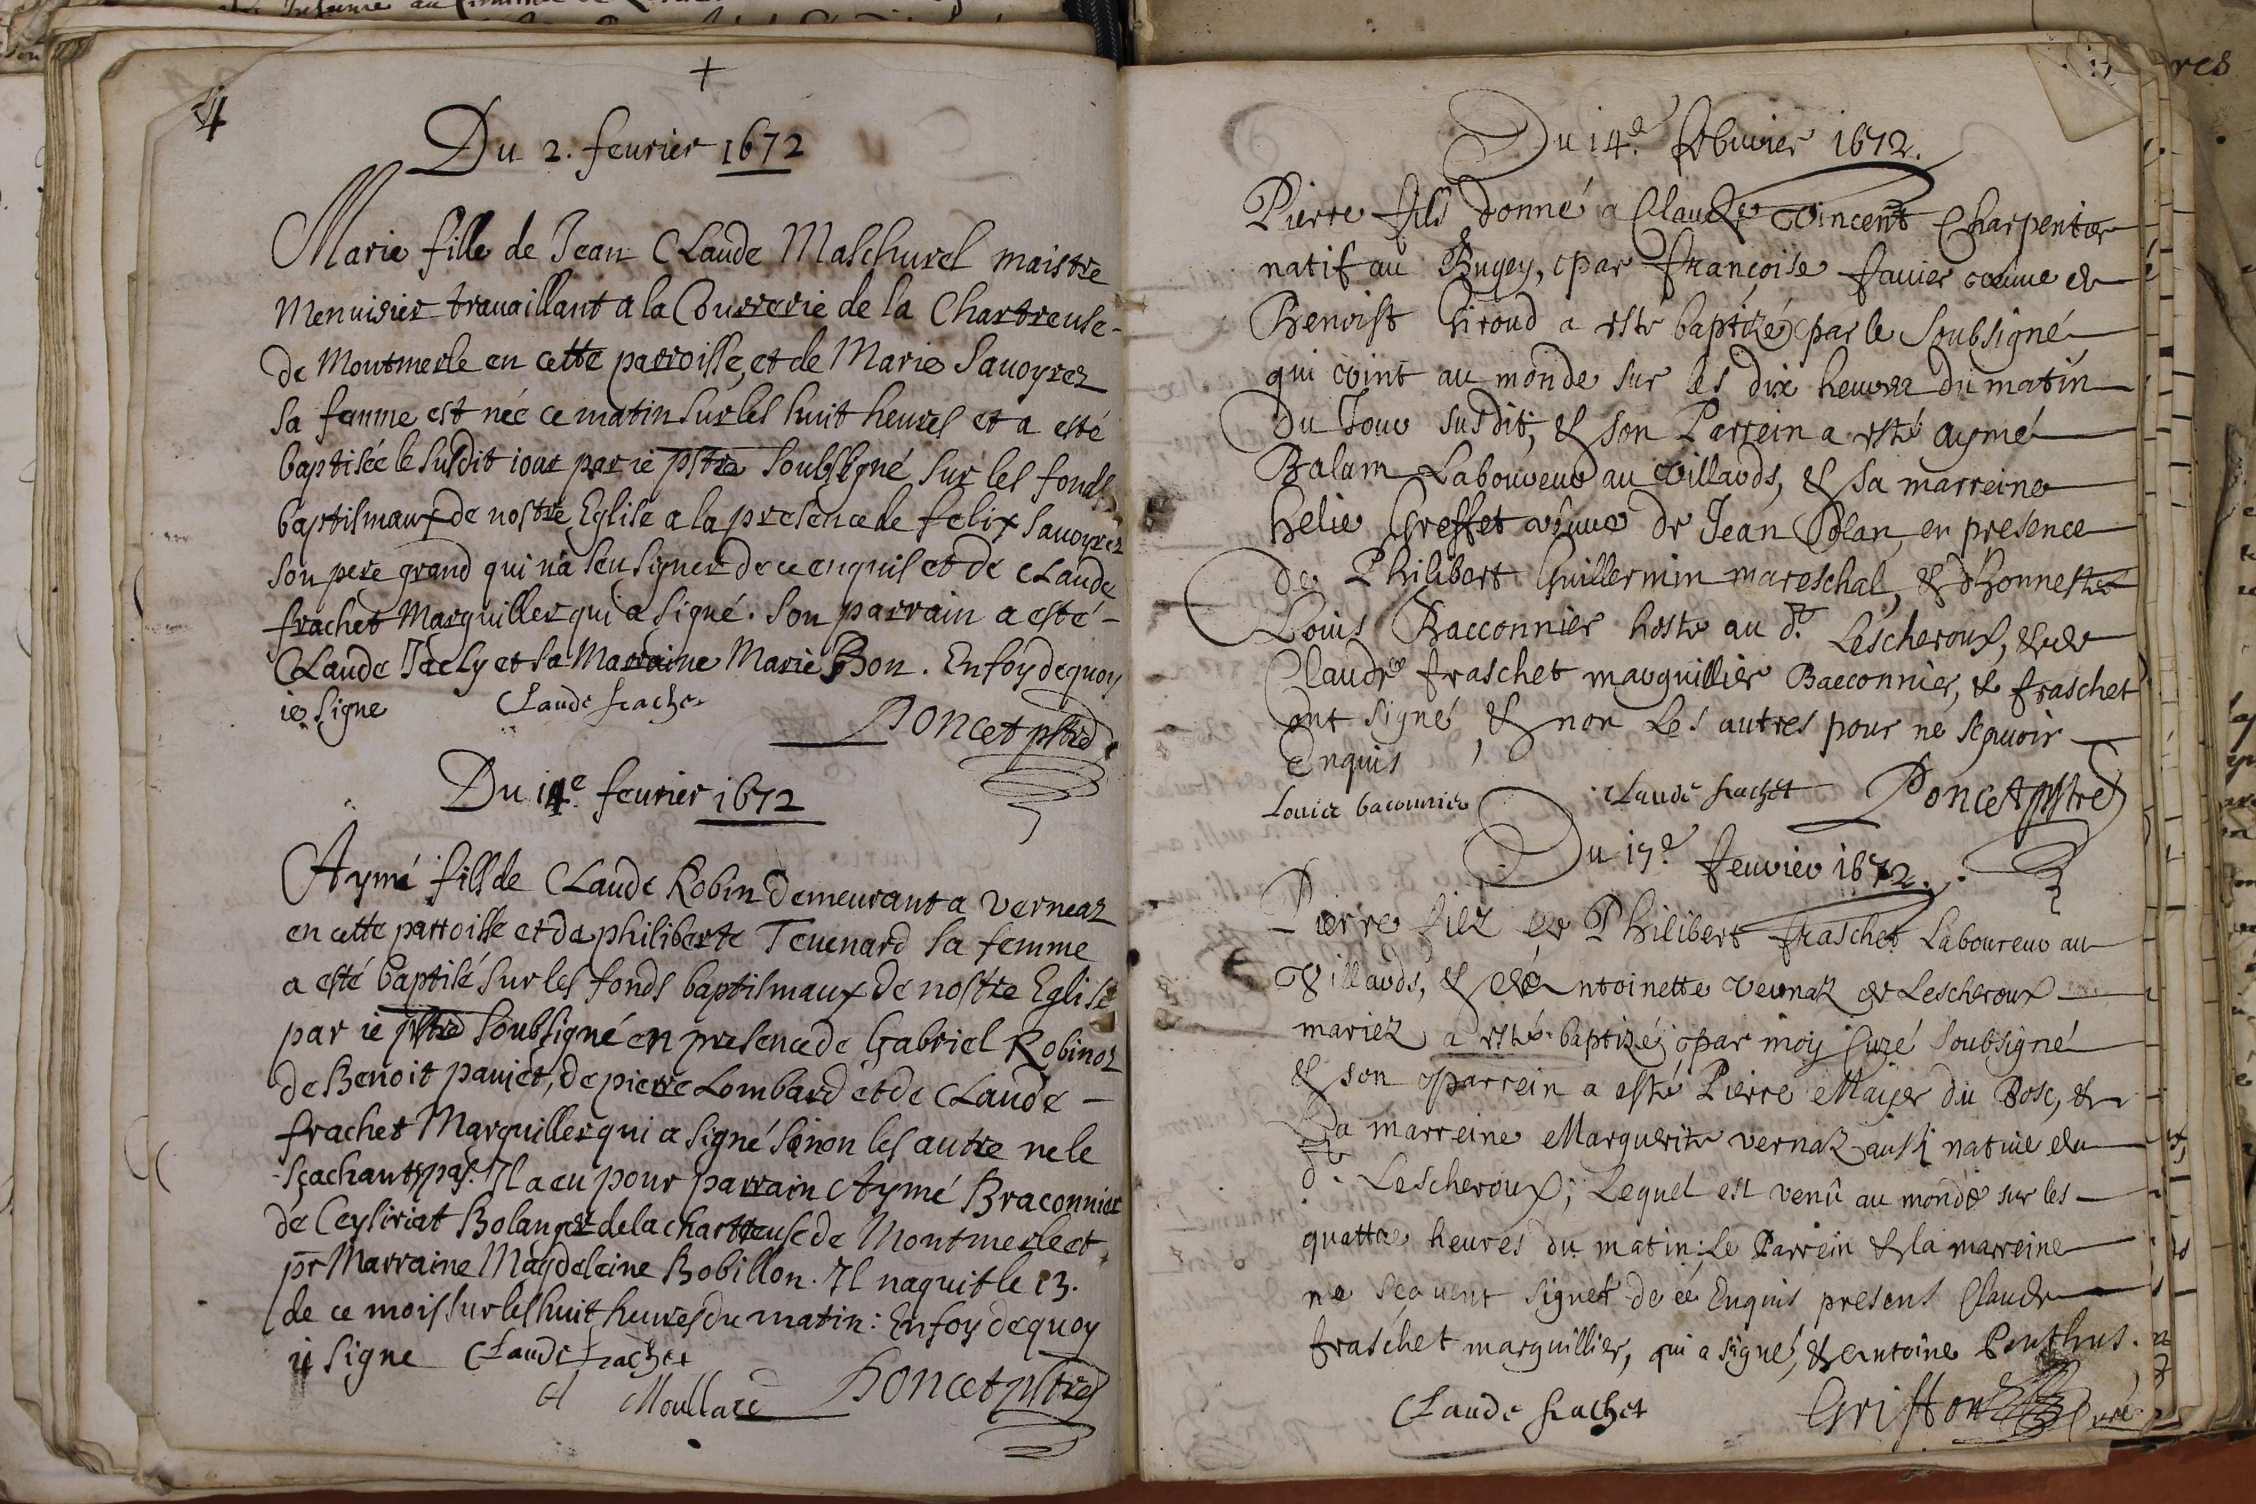 4
+
Du 2. feurier 1672
Marie fille de Jean Claude Maschurel maistre
Menuisier trauaillant a la Courrerie de la Chartreuse -
de Montmerle en cette parroisse, et de Marie Sauoyrez
sa femme est née ce matin sur les huit heures et a esté
baptisée le susdit iour par ie pstre soubsigné sur les fonds
baptismaux de nostre Eglise a la presence de felix Sauoyrez
son pere grand qui n'a seu signer de ce enquis et de Claude
frachet Marguiller qui a signé. Son parrain a esté -
Claude Jacly et sa Marraine Marie Bon. En foy de quoy
ie signe Claude frachet
Poncet pstre
Du 14e. feurier 1672
Aymé fils de Claude Robin demeurant a Verneaz
en cette parroisse et de philiberte Teuenard sa femme
a esté baptisé sur les fonds baptismaux de nostre Eglise
par ie pstre soubsigné en presence de Gabriel Robinoz
de Benoit pauiet, de pierre Lombard et de Claude -
frachet Marguiller qui a signé sinon les autre ne le
sçachants pas. Il a eu pour parrain Aymé Braconnier
de Ceysiriat Bolanger de la chartreuse de Montmerle et
pr Marraine Magdeleine Bobillon. Il naquit le 13.
de ce mois sur les huit heures du matin: En foy de quoy
ie signe Claude frachet
Moullard Poncet pstre
Du 14e. feburier 1672.
Pierre fils donné a Claude Vincent Charpentier
natif au Bugey, par françoise fauier veuue de
Benoist Giroud a esté baptizé par le soubsigné
qui vint au monde sur les dix heures du matin
du Jour susdit, & son Parrein a esté aymé
Balam Laboureur au villards, & sa marreine
helie Greffet veuue de Jean Polan, en presence
de Philibert Guillermin mareschal, & d'honneste
Louis Bacconnier hoste au dt. Lescheroux, & de
Claude fraschet marguillier Bacconnier, & fraschet
ont signé, & non Les autres pour ne sçauoir
Enquis
Louis baconnier Claude frachet Poncet pstre
Du 17e. feurier 1672.
Pierre filz de Philibert fraschet Laboureur au
Villards, & d'Antoinette Vernaz de Lescheroux
mariez a esté baptizé par moy Curé soubsigné
& son parrein a esté Pierre Mayer du Bosc, &
La marreine Marguerite vernaz aussi natiue du
dt. Lescheroux; Lequel est venu au monde sur les
quattre heures du matin; Le Parrein & la marreine
ne sçeuent signer de ce Enquis presens Claude
fraschet marguillier, qui a signé, & Antoine Ponthus.
Claude frachet Griffon Curé